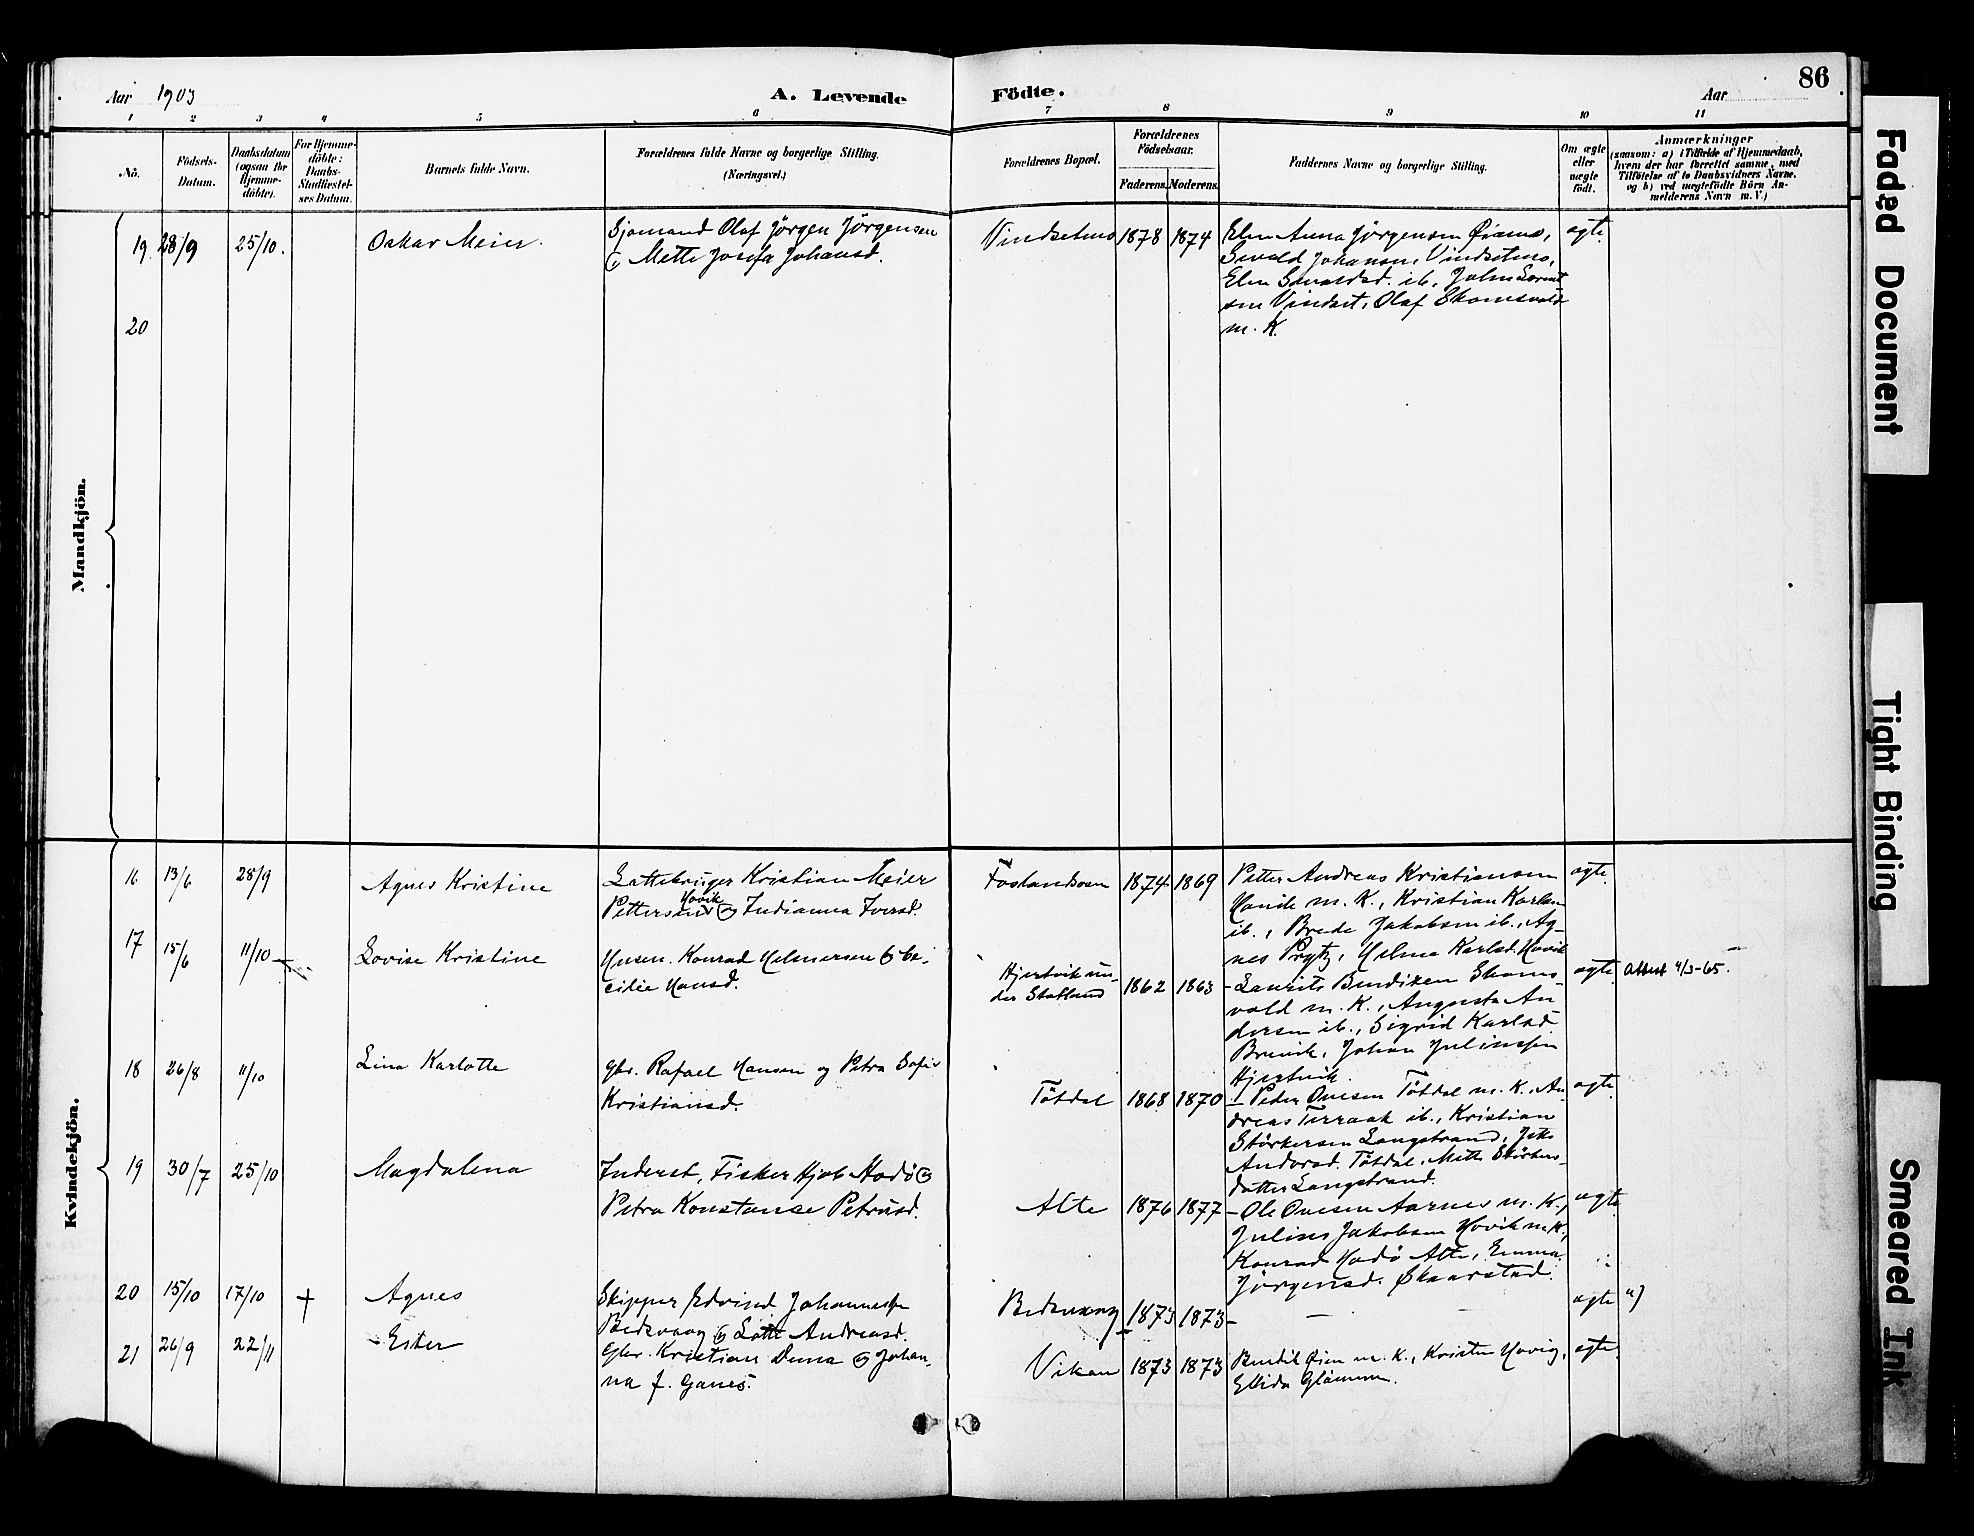 Aar 1903
A. Levende Födte.
Aar
86
1 2 3 4 5 6 7 8 9 10 11
No.
Födsels-
Datum.
Daabsdatum
(ogsaa for
Hjemme-
döbte).
For Hjemme-
döbte:
Daabs-
Stadfæstel-
ses Datum.
Barnets fulde Navn.
Forældrenes fulde Navne og borgerlige Stilling.
(Næringsvei.)
Forældrenes Bopæl.
Forældrenes
Födselsaar.
Faderens. Moderens.
Faddernes Navne og borgerlige Stilling.
Om ægte
eller
uægte
født.
Anmærkninger
(saasom: a) i Tilfælde af Hjemmedaab,
hvem der har forrettet samme, med
Tilföielse af to Daabsvidners Navne,
og b) ved uægtefödte Börn An-
melderens Navn m. V.)
Mandkjön.
19. 28/9 25/10. Oskar Meier.
Sjømand Olaf Jörgen Jörgensen
og Mette Josefa Johansd.
Vindsetmo 1878 1874
Elen Anna Jörgensen
Sivald Johansen, Vindsetmo,
Elen ib., John
Vindset, Olaf
m. K.
ægte
20
Kvindekjön.
16 13/6 28/9 Agnes Kristine
Kristian Meier
Hovik
Pettersen og Indianna Iversd.
1874 1869
Petter Andreas Kristiansen
m. K., Kristian Karlsen
ib., Brede Jakobsen ib., Ag-
nes Prytz, Helma Karlsd. Hovik
ægte
17 15/6 11/10 Lovise Kristine
Husm. Konrad Helmersen og Ce-
cilie Hansd.
Hjertvik un-
der Statland 1862 1863
- Laurits Bendixen
m. K., Augusta An
dersen ib., Sigrid Karlsd.
Brevik, Johan Juliussen
Hjertvik.
ægte Attest 4/3-65.
18 26/8 11/10 Lina Karlotte
Gbr. Rafael Hansen og Petra Sofie
Kristiansd.
Tötdal 1868 1870
- Peder Ovesen Tötdal m. K., An-
dreas Terraak ib., Kristian
Störkersen Langstrand,
Tötdal, Mette Störkers-
datter Langstrand.
ægte
19 30/7 25/10 Magdalena
Inderst, Fisker Hjab Hodö og
Petra Konstanse Petrusd.
Alte 1876 1877
- Ole Ovesen Aarnes m. K.,
Julius Jakobsen Hovik m. K.,
Konrad Hodö Alte, Emma
Jörgensd. Skaarstad.
ægte
20 15/10 17/10 † Agnes
Skipper Edvind Johannessen
og Lotte Andreasd.
1873 1873 - -
ægte a)
21 26/9 22/11 - Ester
Gbr. Kristian Duna og Johan-
na f. Ganes.
Vikan 1873 1873
Bendik m. K., Kristen Hovig,
Ellida
ægte
Faded Document
Tight Binding
Smeared Ink